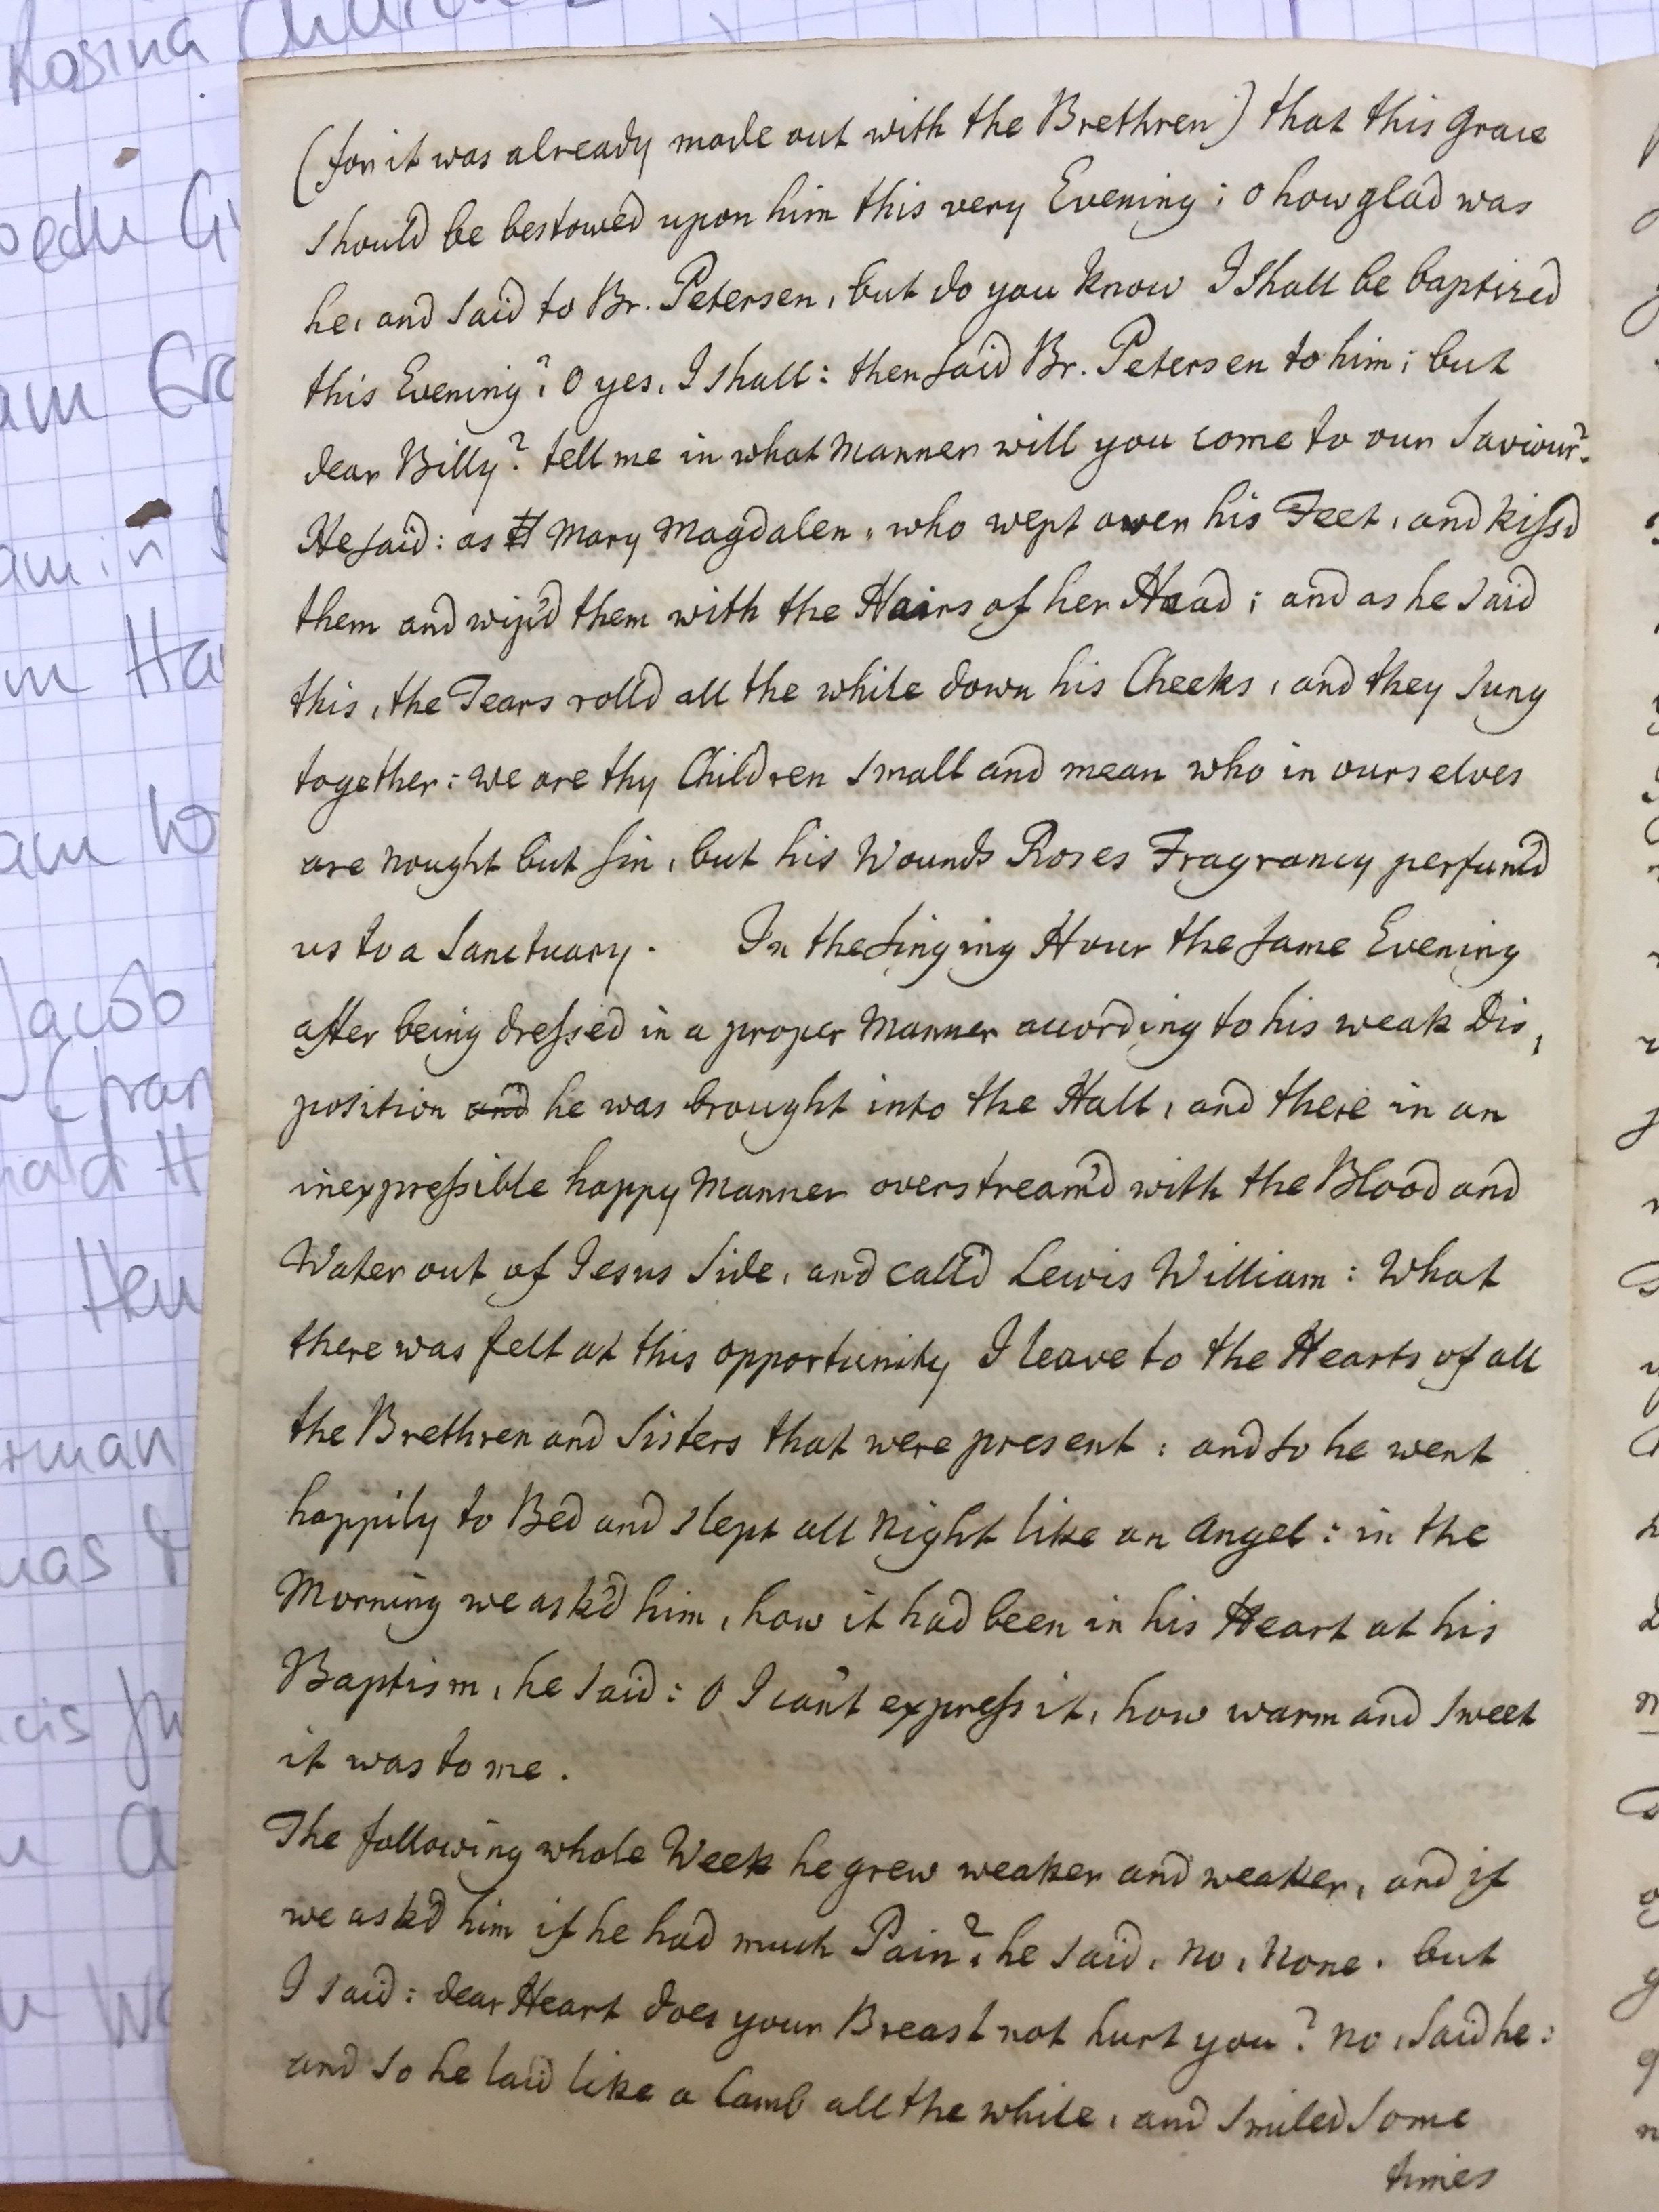 Rosina Church
(for it was already made out with the Brethren) that this Grace
should be bestowed upon him this very Evening; o how glad was
he, and said to Br. Petersen, but do you know I shall be baptized
this Evening? O yes, I shall: then said Br. Petersen to him; but
dear Billy? tell me in what Manner will you come to our Saviour?
He said: as Mary Magdalen, who wept over his Feet, and kiss'd
them and wip'd them with the Hairs of her Head; and as he said
this, the Tears roll'd all the while down his Cheeks, and they sung
together: we are thy Children small and mean who in ourselves
are nought but sin, but his Wounds Roses Fragrancy perfum'd
us to a Sanctuary. In the Singing Hour the same Evening
after being dressed in a proper Manner according to his weak Dis,
position and he was brought into the Hall, and there in an
inexpressible happy Manner overstream'd with the Blood and
Water out of Jesus Side, and call'd Lewis William: What
there was felt at this opportunity I leave to the Hearts of all
the Brethren and Sisters that were present: and so he went
happily to Bed and slept all Night like an Angel: in the
Morning we ask'd him, how it had been in his Heart at his
Baptism, he said: O I can't express it, how warm and sweet
it was to me.
The following whole Week he grew weaker and weaker, and if
we ask'd him if he had much Pain? he said, no, none. but
I said: dear Heart does your Breast not hurt you? no, said he:
and so he laid like a Lamb all the while, and smiled some
times
Jacob